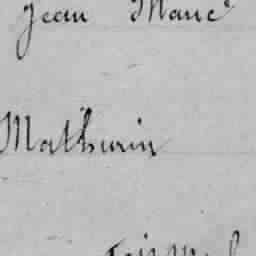 Jean Marie
Mathurin